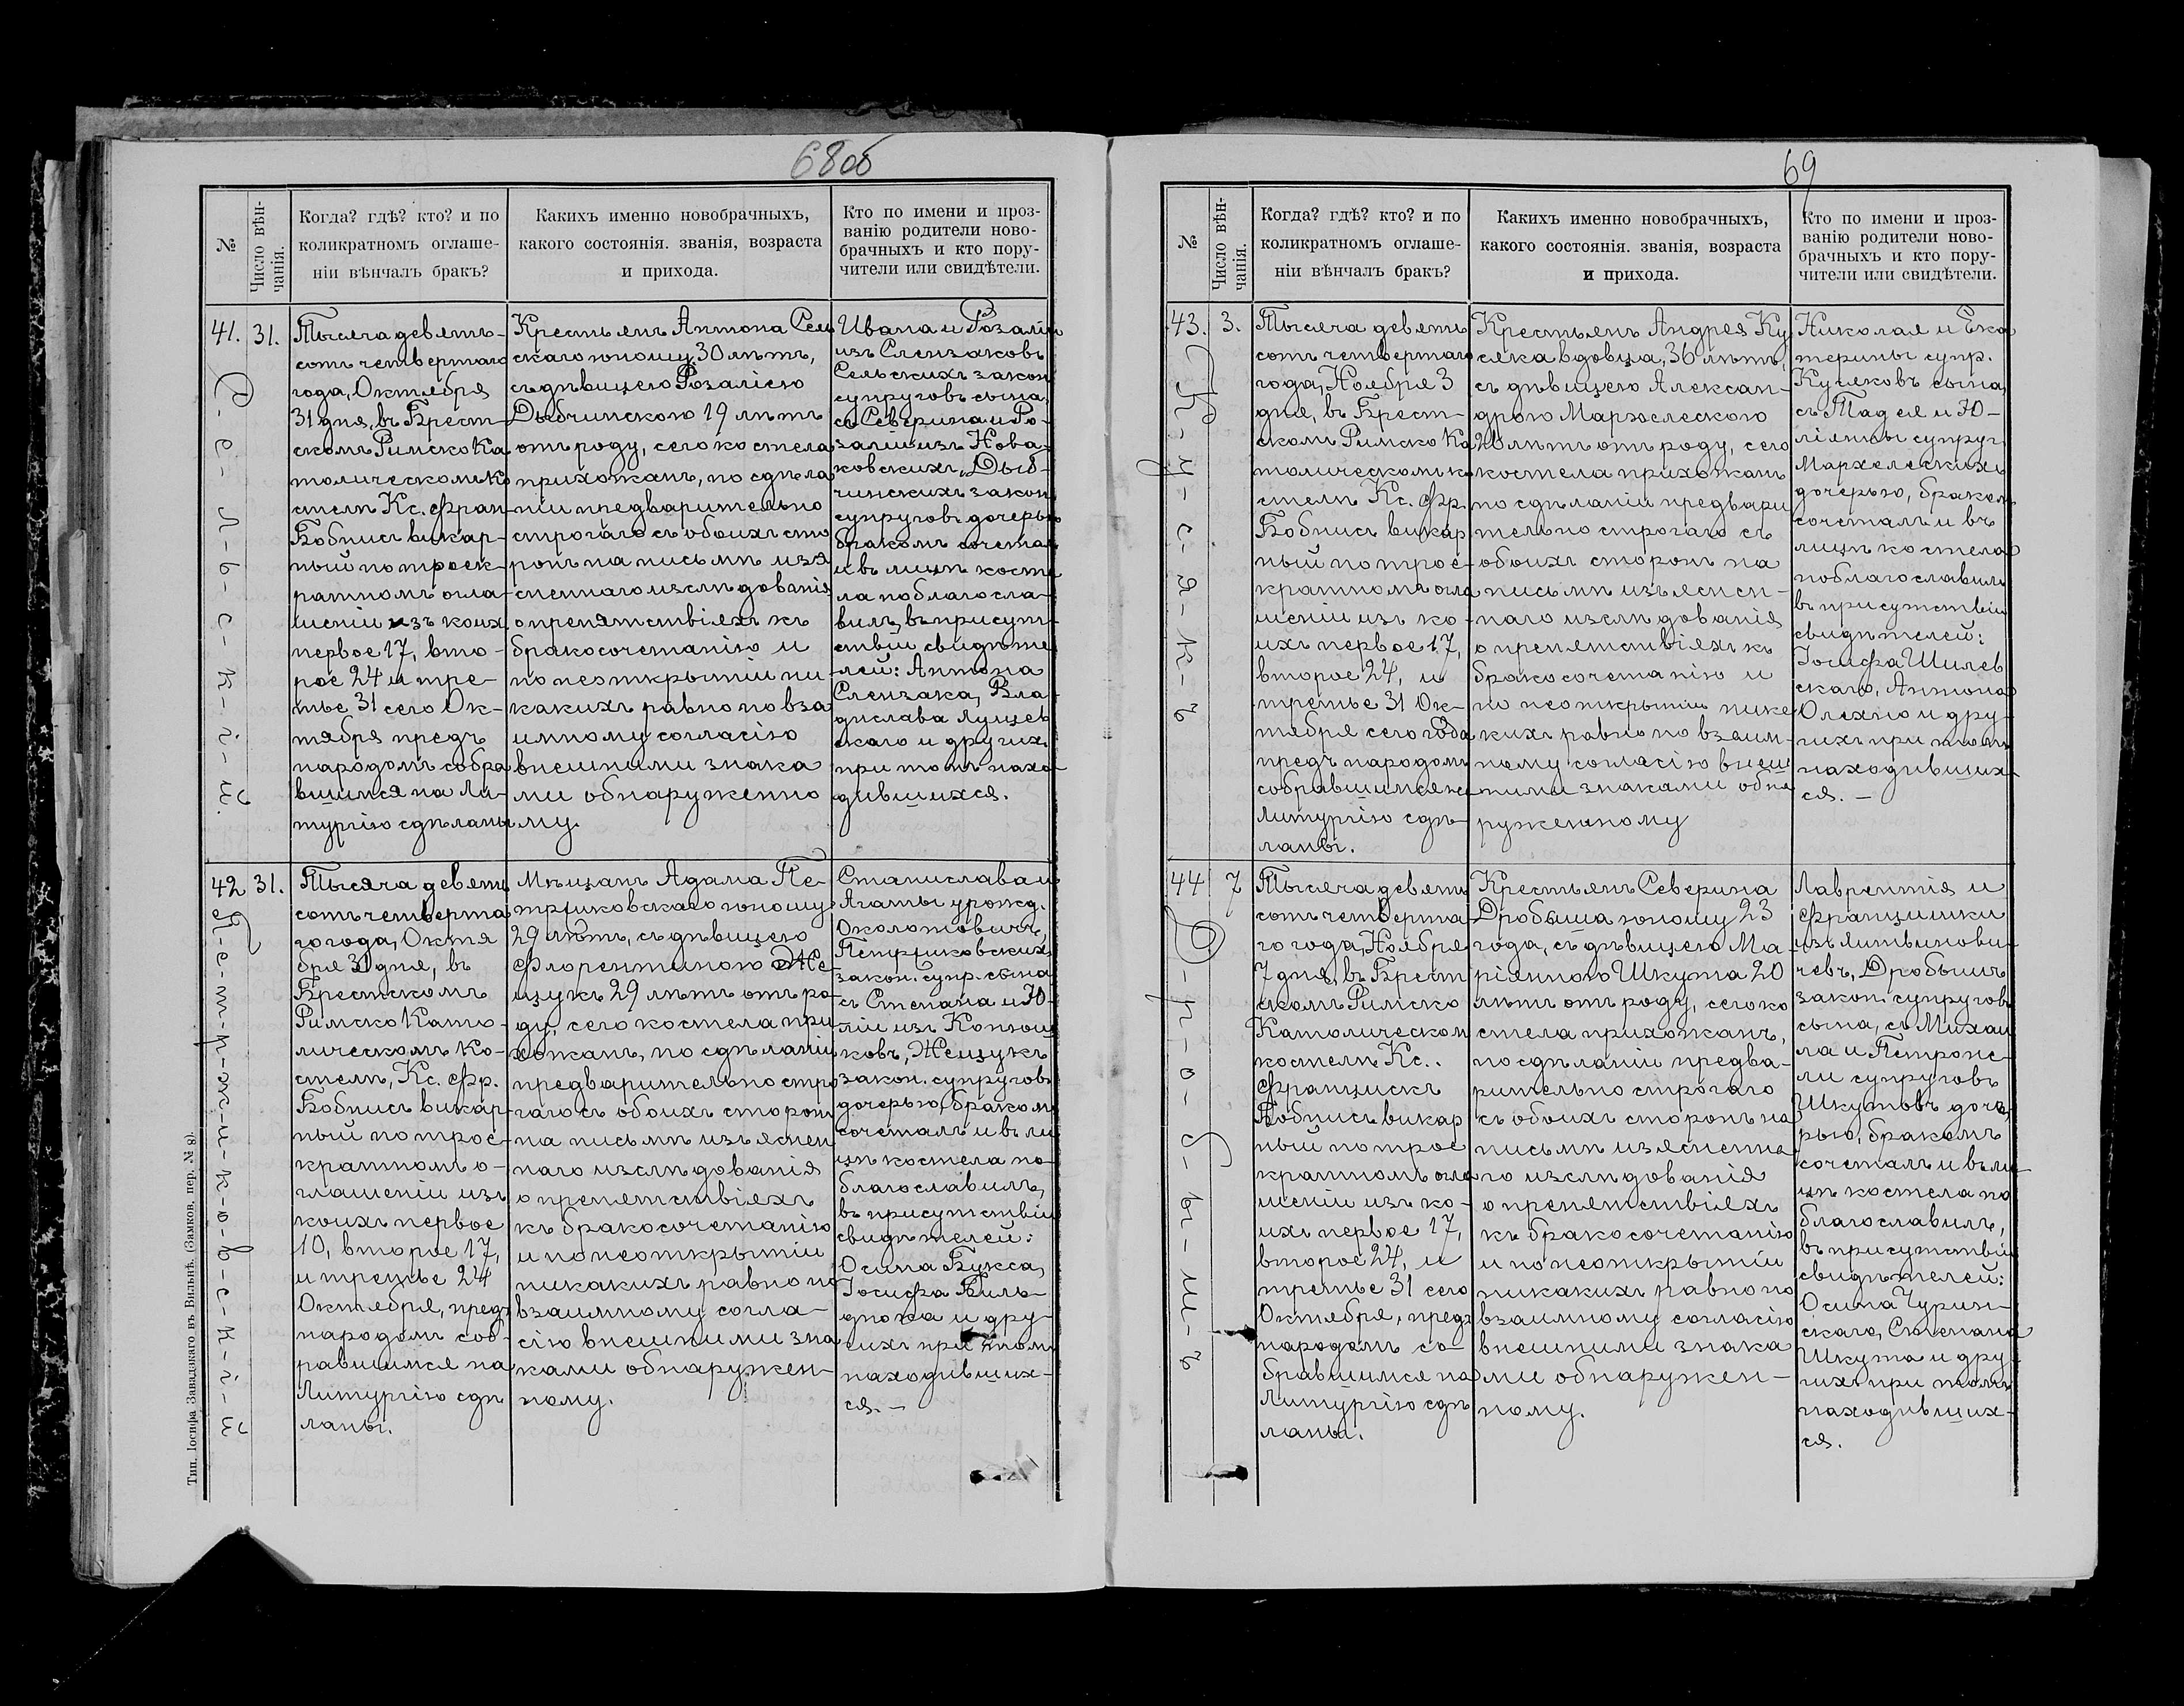 68об
№
Число вѣн-
чанія.
Когда? гдѣ? кто? и по
коликратномъ оглаше-
ніи вѣнчалъ бракъ?
Какихъ именно новобрачныхъ,
какого состоянія. званія, возраста
и прихода.
Кто по имени и проз-
ванію родители ново-
брачныхъ и кто пору-
чители или свидѣтели.
41.
31.
С-е-л-ь-с-к-і-й.
Тысяча девять-
сотъ четвертаго
года, Октября
31 дня, въ Брест-
скомъ Римско Ка
толическомъ Ко
стелѣ Кс. Фран
Бобнисъ викар-
ный по троек-
ратномъ огла-
шеніи изъ коих.
первое 17, вто-
рое 24 и тре-
тье 31 сего Ок-
тября предъ
народомъ собра
вшимся на Ли-
тургію сдѣланы
Крестьянъ Антона Сель
скаго юношу 30 лѣтъ,
съ дѣвицею Розаліею
Дыбчинскою 19 лѣтъ
отъ роду, сего костела
прихожанъ, по сдѣла
ніи предварительно
строгаго съ обоихъ сто
ронъ на письмѣ изя
сненнаго изслѣдованія
о препятствіяхъ къ
бракосочетанію и
по неоткрытіи ни-
какихъ равно по вза
имному согласію
внешними знака
ми обнаруженно
му.
Ивана и Розаліи
изъ Слензаковъ
Сельскихъ закон
супруговъ сына,
съ Северина и Ро-
заліи изъ Нова-
ковскихъ, Дыб-
чинскихъ закон
супруговъ дочерью
бракомъ сочеталъ
и въ лицѣ косте
ла поблагосла-
вилъ, въ присут-
ствіи свидѣте-
лей: Антона
Слензака, Вла-
дислава Лущев
скаго и другихъ
при томъ нахо-
дившихся.
42
31.
П-е-т-р-ж-и-к-о-в-с-к-і-й
Тысяча девять
сотъ четверта
го года, Октя
бря 31 дня, въ
Брестскомъ
Римско Като-
лическомъ Ко-
стелѣ, Кс. Фр.
Бобнисъ викар-
ный по трое-
кратномъ о-
глашеніи изъ
коихъ первое
10, второе 17,
и третье 24
Октября, предъ
народомъ соб-
равшимся на
Литургію сдѣ
ланы.
Мѣщанъ Адама Пе-
тржиковскаго юношу
29 лѣтъ, съ дѣвицею
Флорентиною Же-
щукъ 29 лѣтъ отъ ро-
ду, сего костела при
хожанъ, по сдѣланіи
предварительно стро
гаго съ обоихъ сторонъ
на письмѣ изъяснен
наго изслѣдованія
о препятствіяхъ
къ бракосочетанію
и по неоткрытіи
никакихъ равно по
взаимному согла-
сію внешними зна
ками обнаружен-
ному.
Станислава и
Агаты урожд.
Околотовичъ,
Петржиковских
закон. супр. сына
съ Степана и Ю-
ліи изъ
ковъ, Жещукъ
закон. супруговъ
дочерью, бракомъ
сочеталъ и въ ли
цѣ костела по-
благославилъ,
въ присутствіи
свидѣтелей:
Осипа Букса,
Іосифа Виль-
и дру-
гихъ при томъ
находивших-
ся. -
Тип. Іосифа Завадзкаго въ Вильнѣ. (Замков. пер. № 8).
69
№
Число вѣн-
чанія.
Когда? гдѣ? кто? и по
коликратномъ оглаше-
ніи вѣнчалъ бракъ?
Какихъ именно новобрачныхъ,
какого состоянія. званія, возраста
и прихода.
Кто по имени и проз-
ванію родители ново-
брачныхъ и кто пору-
чители или свидѣтели.
43.
3.
К-у-с-я-к-ъ
Тысяча девять
сотъ четвертаго
года, Ноября 3
дня, въ Брест-
скомъ Римско Ка
толическомъ ко
стелѣ Кс. Фр.
Бобнисъ викар
ный по трое-
кратномъ огла
шеніи изъ ко-
ихъ первое 17,
второе 24, и
третье 31 Ок-
тября сего года
предъ народомъ
собравшимся на
Литургію сдѣ-
ланы.
Крестьянъ Андрея Ку
сяка вдовца, 36 лѣтъ,
съ дѣвицею Алексан-
дрою Мархелескою
20 лѣтъ отъ роду, сего
костела прихожанъ
по сдѣланіи предвари
тельно строгаго съ
обоихъ сторонъ на
письмѣ изъяснен-
наго изслѣдованія
о препятствіяхъ къ
бракосочетанію и
по неоткрытіи ника
кихъ равно по взаим-
ному согласію внеш
ними знаками обна
руженному
Николая и Ека
терины супр.
Кусяковъ сына,
съ Тадея и Ю-
ліянны супруг
Мархелескихъ
дочерью, браком
сочеталъ и въ
лицѣ костела
поблагославилъ
въ присутствіи
свидѣтелей:
Іосифа Шилев
скаго, Антона
Олехно и дру-
гихъ при томъ
находивших-
ся. -
44
7
Д-р-о-б-ы-ш-ъ
Тысяча девять
сотъ четверта-
го года, Ноября
7 дня, въ Брест
скомъ Римско
Католическом
костелѣ Кс..
Францискъ
Бобнисъ викар
ный по трое
кратномъ огла
шеніи изъ ко-
ихъ первое 17,
второе 24, и
третье 31 сего
Октября, предъ
народомъ со-
бравшимся на
Литургію сдѣ
ланы.
Крестьянъ Северина
Дробыша юношу 23
года, съ дѣвицею Ма-
ріянною Шкута 20
лѣтъ отъ роду, сего ко
стела прихожанъ,
по сдѣланіи предва-
рительно строгаго
съ обоихъ сторонъ на
письмѣ изясненна
го изслѣдованія
о препятствіяхъ
къ бракосочетанію
и по неоткрытіи
никакихъ равно по
взаимному согласію
внешними знака
ми обнаружен-
ному.
Лаврентія и
Францишки
изъ Литвинови-
чевъ, Дробышъ
закон. супруговъ
сына, съ Михаи
ла и Петроне-
ли супруговъ
Шкутовъ доче
рью, бракомъ
сочеталъ и въ ли
цѣ костела по
благославилъ,
въ присутствіи
свидѣтелей:
Осипа Чурин-
скаго, Степана
Шкута и дру-
гихъ при томъ
находивших-
ся.